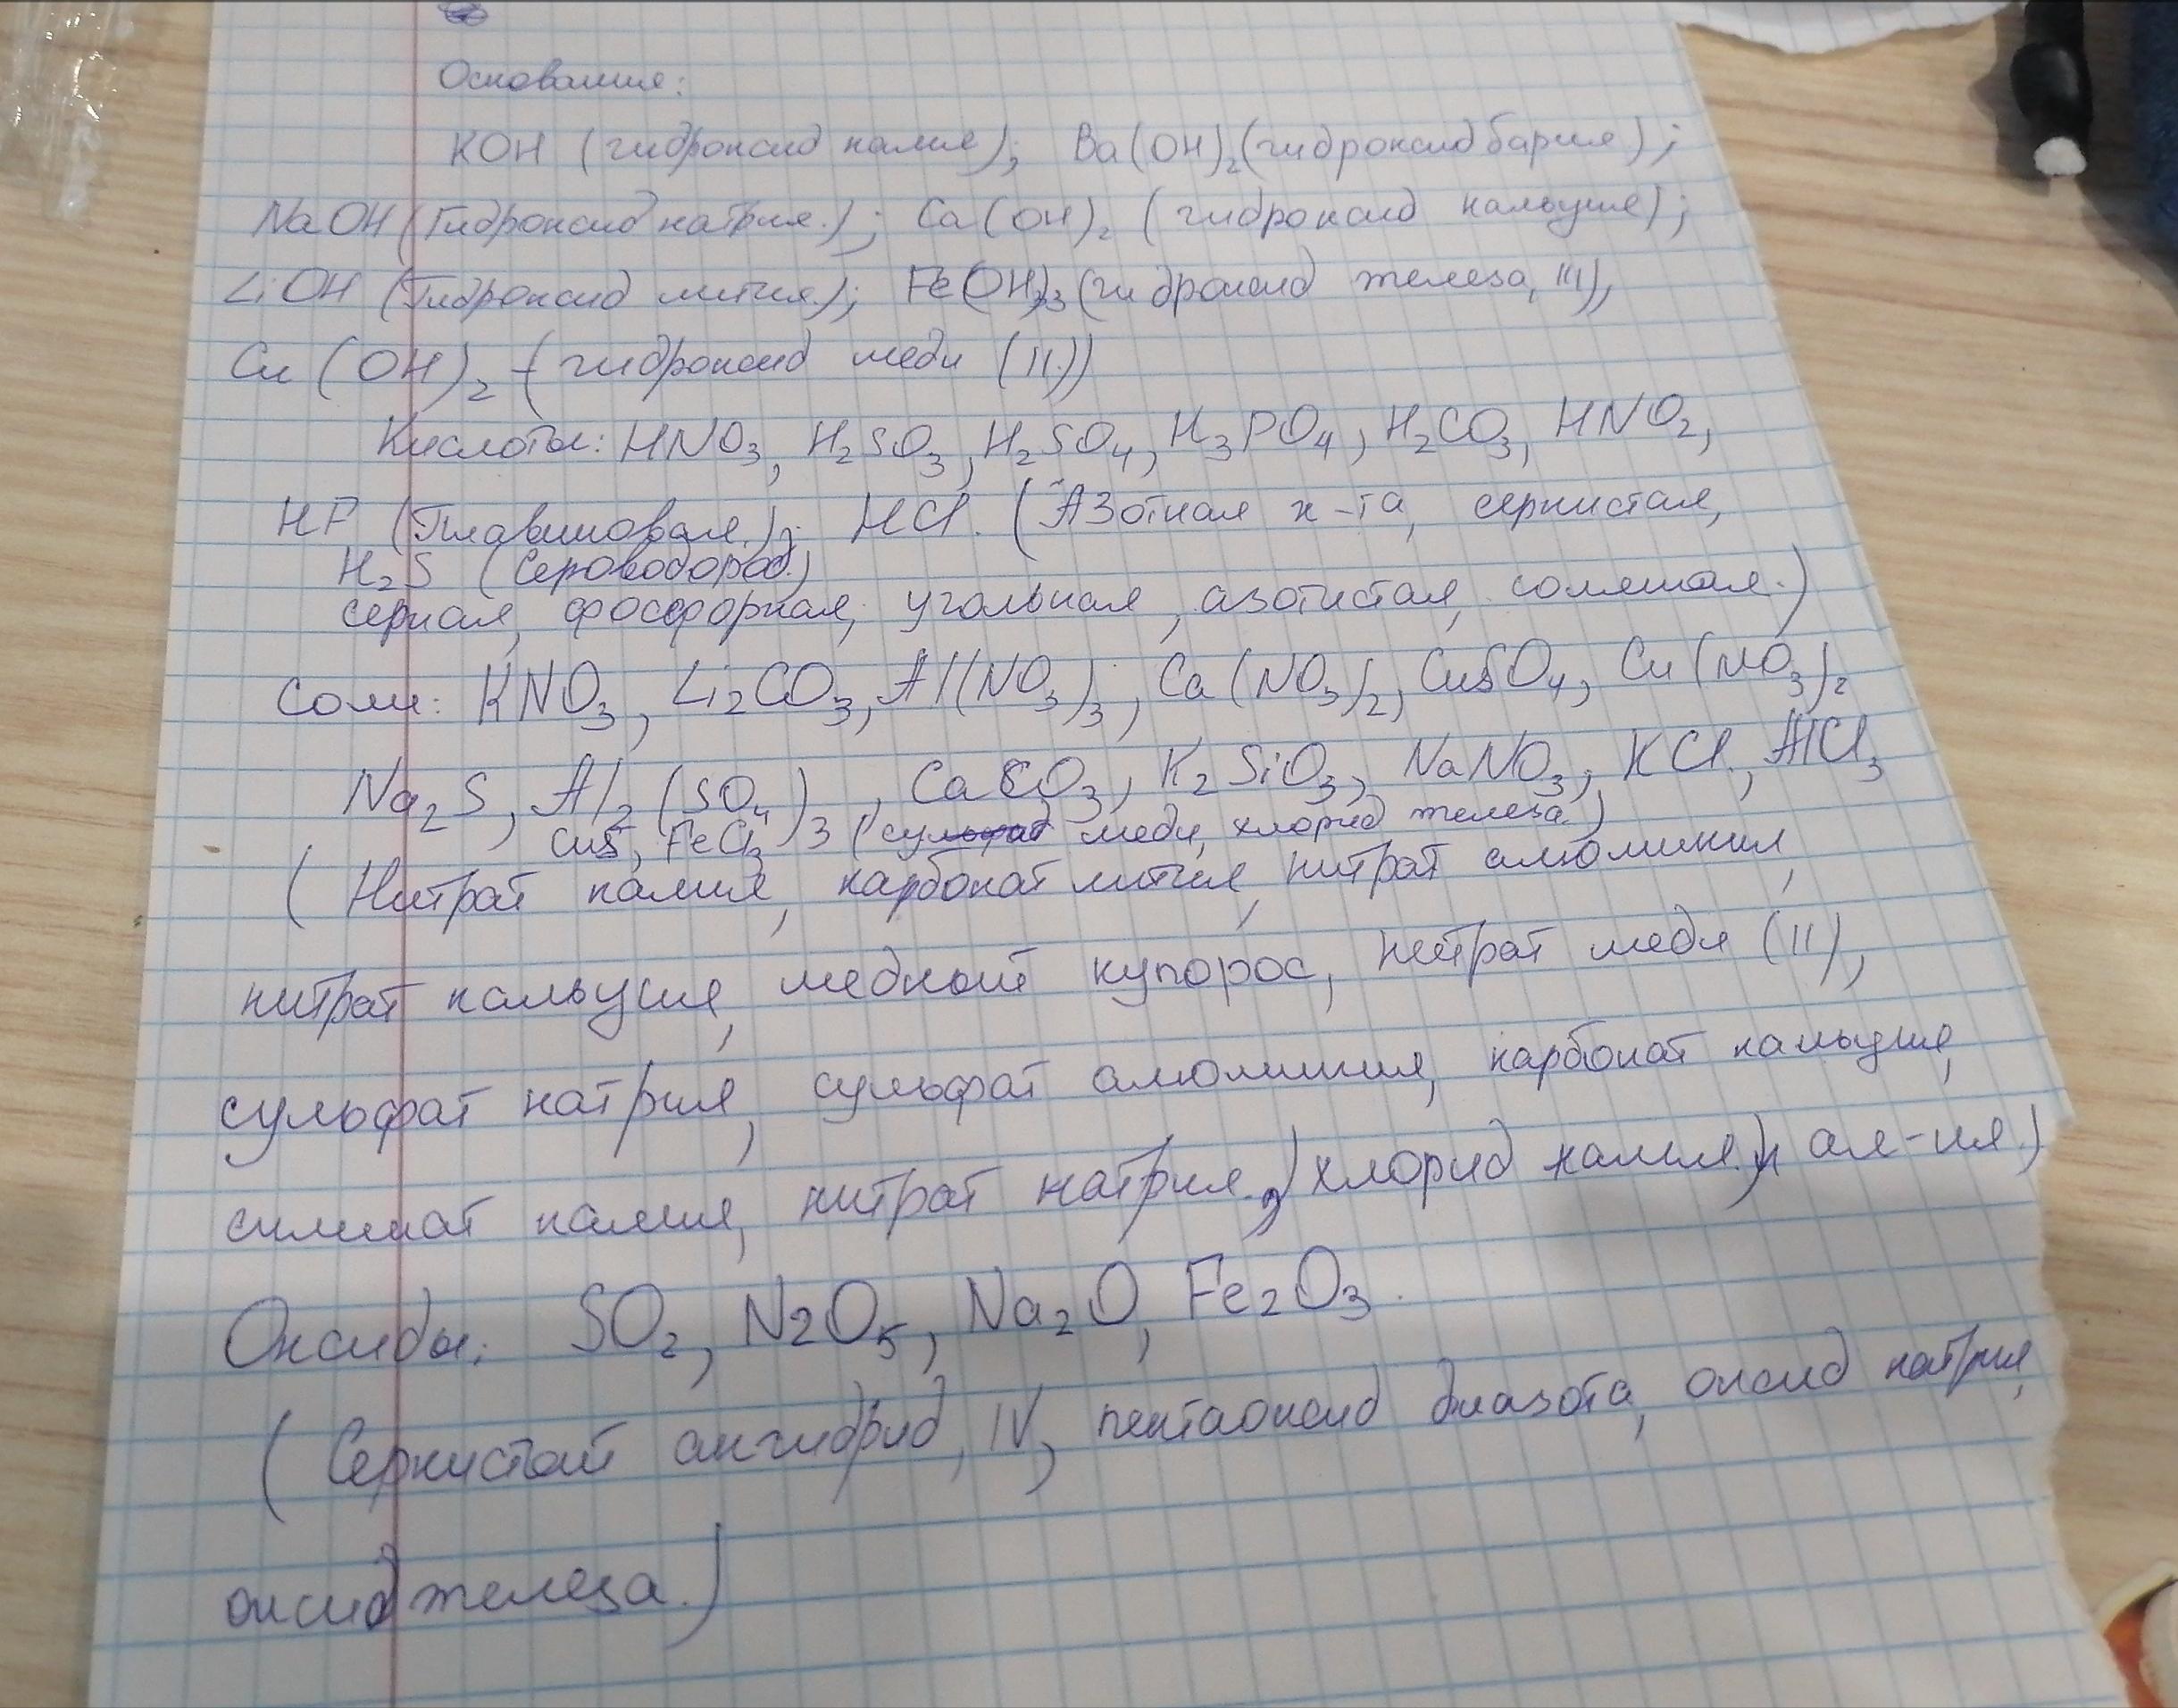 Основания:
KOH (гидроксид калия); Ba(OH)₂ (гидроксид бария);
NaOH (Гидроксид натрия.); Ca(OH)₂ (гидроксид кальция);
LiOH (Гидроксид лития.); Fe(OH)₃ (гидроксид железа, III),
Cu(OH)₂ - (гидроксид меди (II))
Кислоты: HNO₃, H₂SO₃, H₂SO₄, H₃PO₄, H₂CO₃, HNO₂,
HF (Плавиковая.); HCl. (Азотная к-та, сернистая,
H₂S (Сероводород.)
серная, фосфорная, угольная, азотистая, соляная.)
Соли: KNO₃, Li₂CO₃, Al(NO₃)₃, Ca(NO₃)₂, CuSO₄, Cu(NO₃)₂
Na₂S, Al₂(SO₄)₃, CaCO₃, K₂SiO₃, NaNO₃, KCl., AlCl₃
CuS, FeCl₃ (сульфид меди, хлорид железа.)
(Нитрат калия, карбонат лития, нитрат алюминия,
нитрат кальция, медный купорос, нитрат меди (II),
сульфат натрия, сульфат алюминия, карбонат кальция,
силикат калия, нитрат натрия.,) хлорид калия.) и ал-ия.)
Оксиды: SO₂, N₂O₅, Na₂O, Fe₂O₃.
(Сернистый ангидрид, IV, пентаоксид диазота, оксид натрия,
оксид железа.)